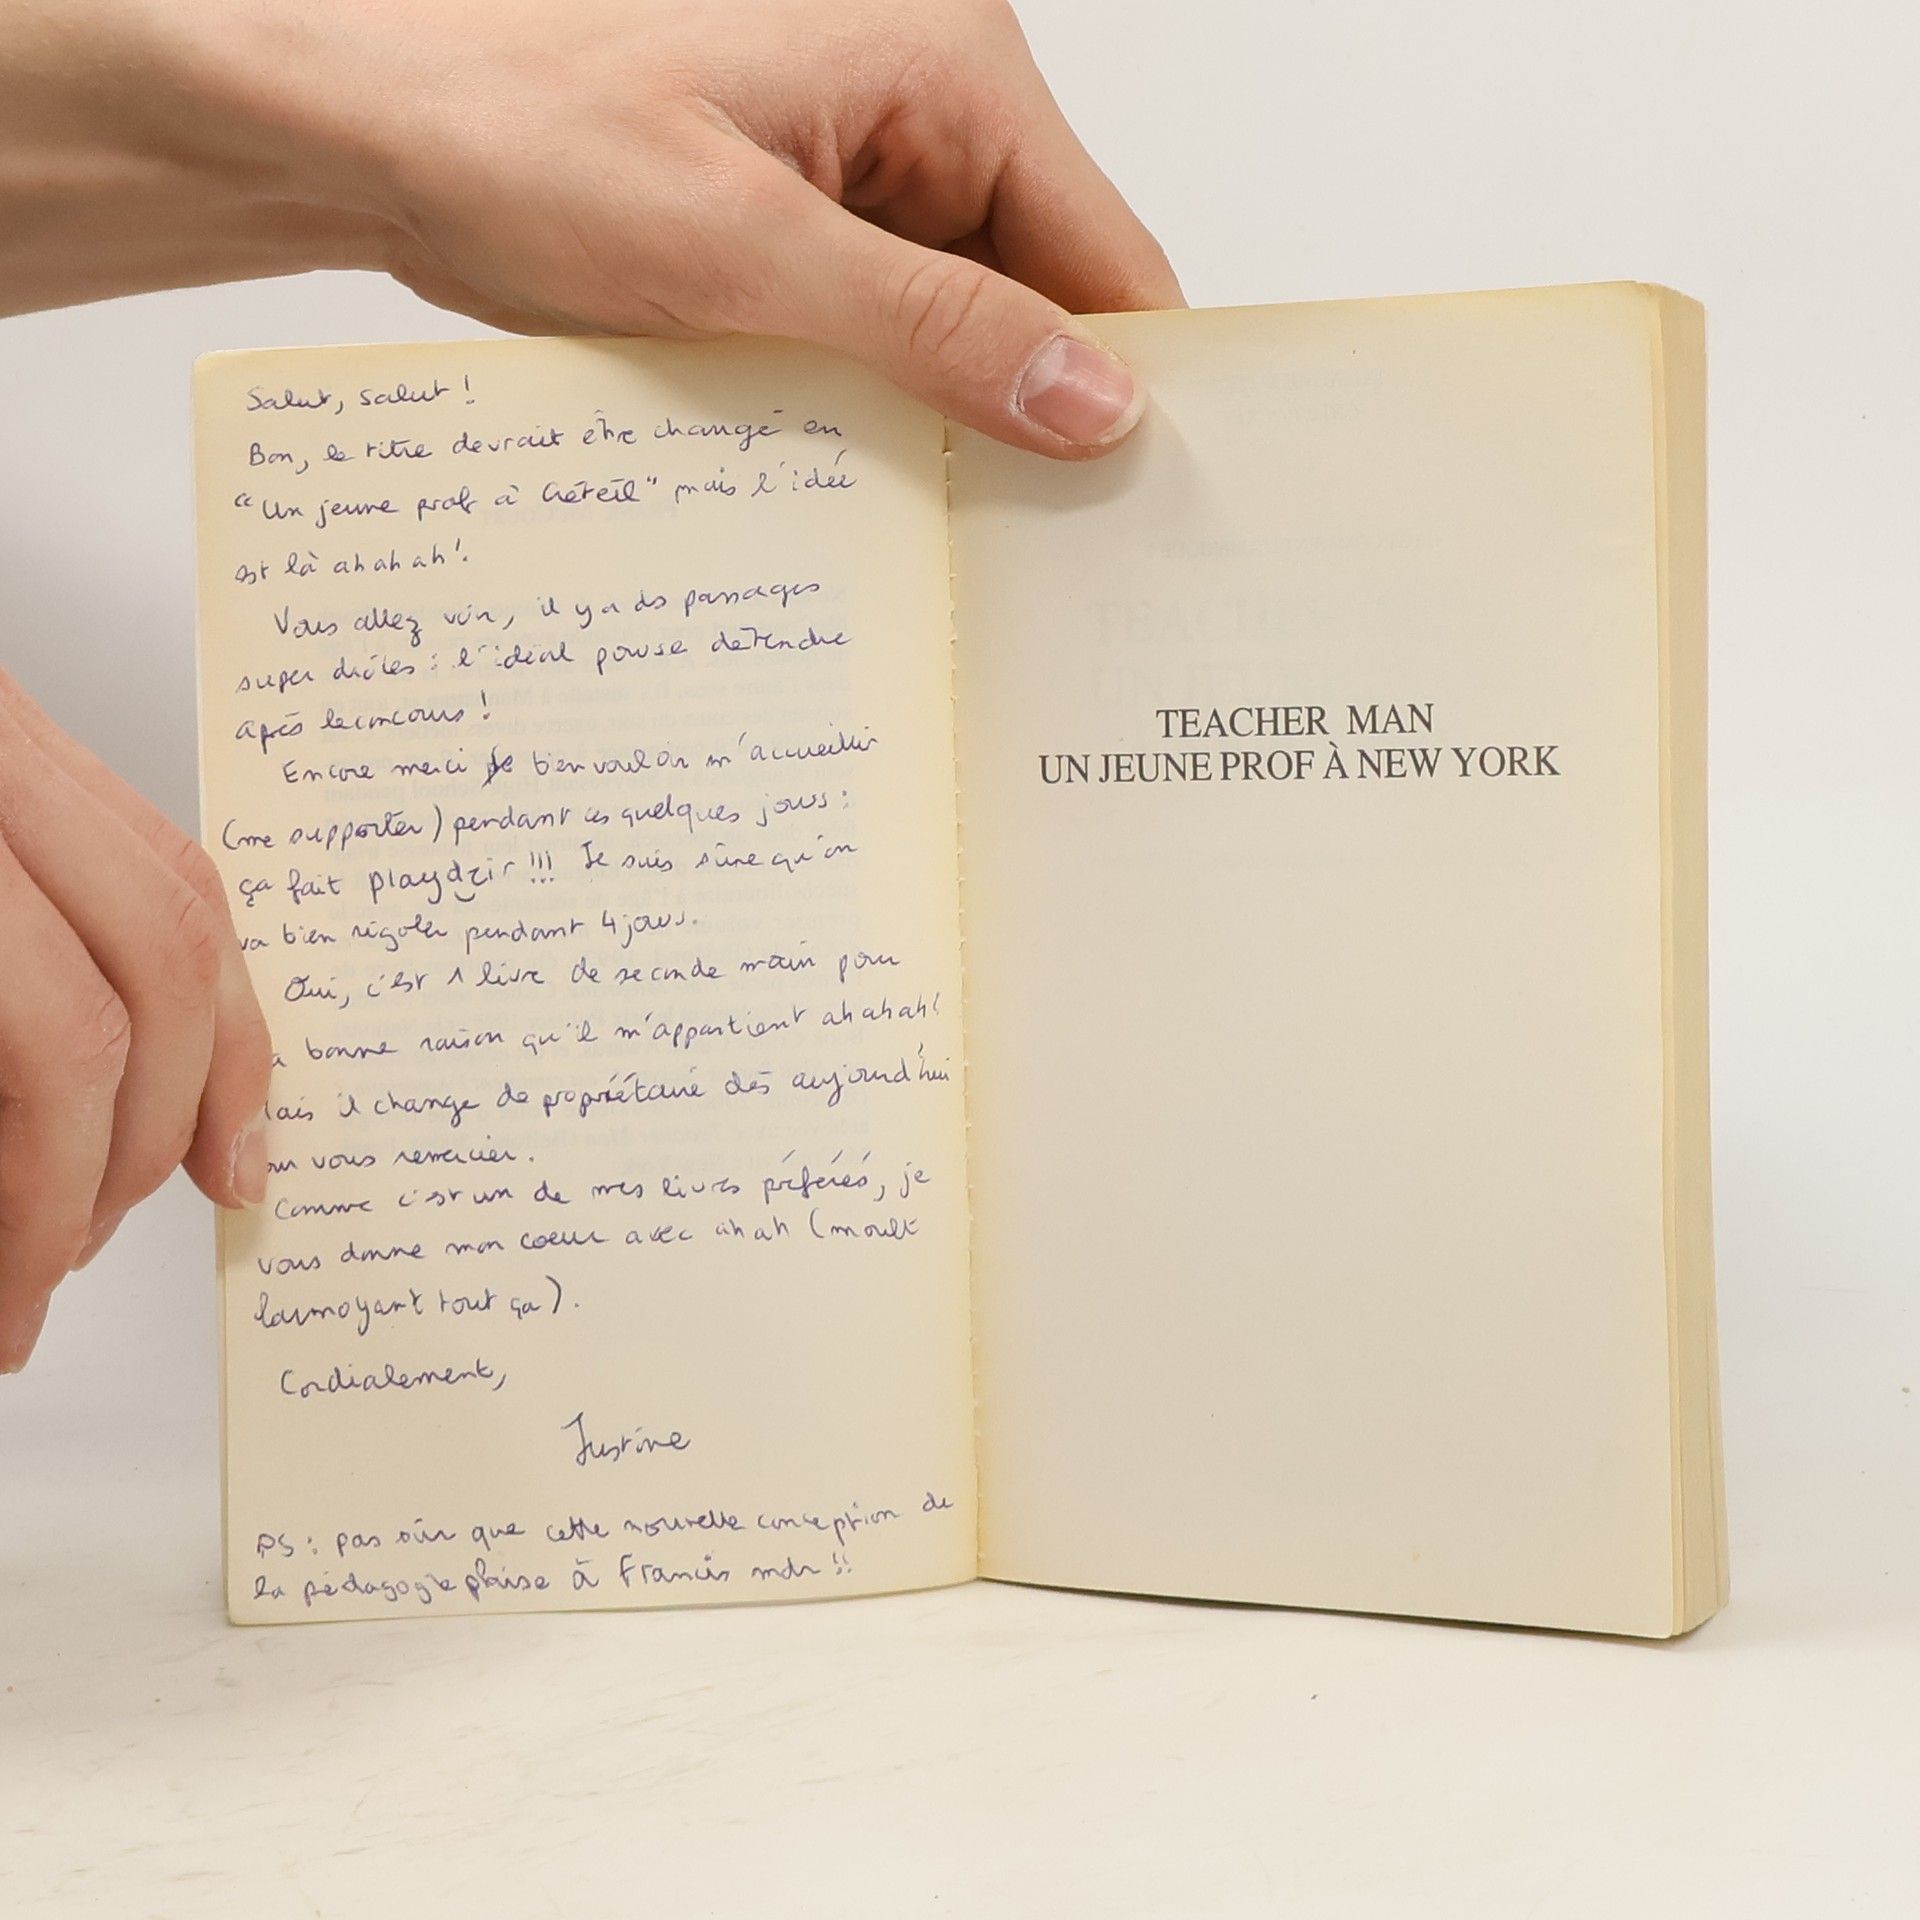 Salut, salut !
Bon, le titre devrait être changé en
"Un jeune prof à Créteil" mais l'idée
est là ah ah ah !
Vous allez voir, il y a des passages
super drôles : l'idéal pour se détendre
après le concours !
Encore merci de bien vouloir m'accueillir
(me supporter) pendant ces quelques jours :
ça fait playdzir !!! Je suis sûre qu'on
va bien rigoler pendant 4 jours.
Oui, c'est 1 livre de seconde main pour
a bonne raison qu'il m'appartient ah ah ah !
ais il change de propriétaire dès aujourd'hui
ur vous remercier.
Comme c'est un de mes livres préférés, je
vous donne mon coeur avec ah ah (moult
larmoyant tout ça).
Cordialement,
Justine
PS : pas sûr que cette nouvelle conception de
la pédagogie plaise à Francis mdr !!
TEACHER MAN
UN JEUNE PROF À NEW YORK